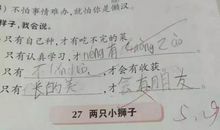 ）不怕事情难办，就怕你是懒汉。
样子，我会说。
只有自己种，才有吃不完的菜
只有认真学习，才 néng 有
只有 不 ，才会有收获
只有 长的美 ，才 会有朋友
27 两只小狮子
5.29